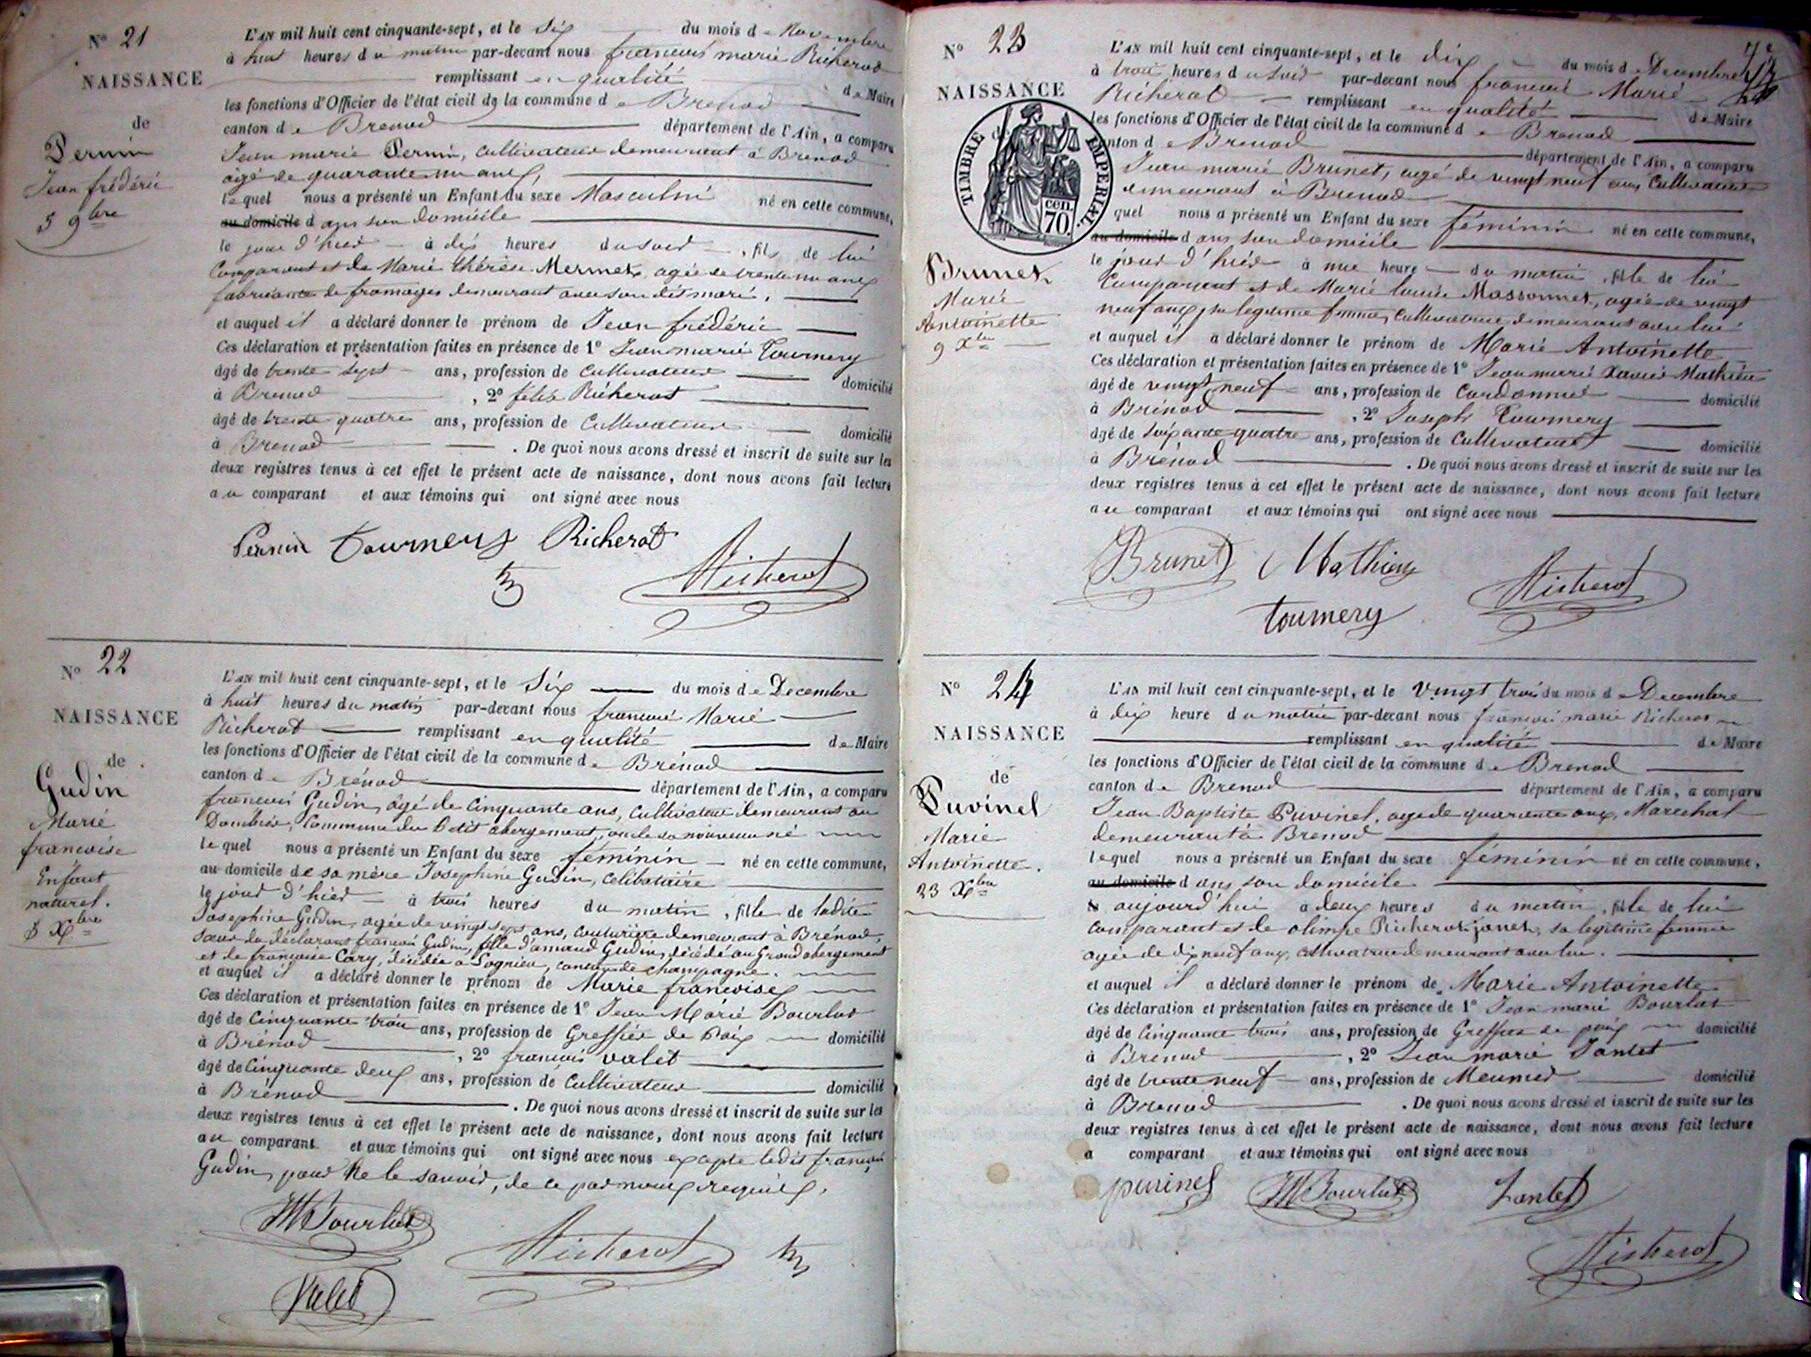 N° 21
NAISSANCE
de
Pernin
Jean frédéric
5 9bre
L'AN mil huit cent cinquante-sept, et le Six du mois de Novembre
à huit heures du matin par-devant nous françois marie Richerot
remplissant en qualité de Maire
les fonctions d'Officier de l'état civil de la commune de Brenod
canton de Brenod département de l'Ain, a comparu
Jean marie Pernin, cultivateur demeurant à Brenod
agé de quarante un ans,
lequel nous a présenté un Enfant du sexe Masculin né en cette commune,
au domicile dans son domicile
le jour d'hier à dix heures du soir, fils de lui
Comparant et de Marie thérèse Mermet, agée de trente un ans
fabricante de fromages demeurant avec son dit mari.
et auquel il a déclaré donner le prénom de Jean frédéric
Ces déclaration et présentation faites en présence de 1° Jean marie Tournery
âgé de trente sept ans, profession de Cultivateur domicilié
à Brenod, 2° félix Richerot
âgé de trente quatre ans, profession de Cultivateur domicilié
à Brenod. De quoi nous avons dressé et inscrit de suite sur les
deux registres tenus à cet effet le présent acte de naissance, dont nous avons fait lecture
au comparant et aux témoins qui ont signé avec nous
Pernin Tournery Richerot
Richerot
N° 22
NAISSANCE
de
Gudin
Marie
francoise
Enfant
naturel.
5 Xbre
L'AN mil huit cent cinquante-sept, et le Six du mois de Decembre
à huit heures du matin par-devant nous françois Marie
Richerot remplissant en qualité de Maire
les fonctions d'Officier de l'état civil de la commune de Brénod
canton de Brénod département de l'Ain, a comparu
francois Gudin, âgé de Cinquante ans, Cultivateur demeurant au
Dombier, Commune du Petit abergement, oncle du nouveau né
lequel nous a présenté un Enfant du sexe féminin né en cette commune,
au domicile de sa mère Josephine Gudin, célibataire
le jour d'hier à trois heures du matin, fille de ladite
Josephine Gudin, agée de vingt sept ans, couturière demeurant à Brénod,
sœur du déclarant francois Gudin, fille d'amand Gudin, décédé au Grand abergement
et de françoise Cary, décédée à Sognieu, canton de champagne.
et auquel il a déclaré donner le prénom de Marie francoise
Ces déclaration et présentation faites en présence de 1° Jean Marie Bourlot
âgé de Cinquante trois ans, profession de Greffier de Paix domicilié
à Brénod, 2° francois valet
âgé de Cinquante deux ans, profession de Cultivateur domicilié
à Brénod. De quoi nous avons dressé et inscrit de suite sur les
deux registres tenus à cet effet le présent acte de naissance, dont nous avons fait lecture
au comparant et aux témoins qui ont signé avec nous excepté ledit francois
Gudin, pour ne le savoir, de ce par nous requis.
JM Bourlot
Richerot
Valet
N° 23
NAISSANCE
de
TIMBRE IMPERIAL
70 cen.
Brunet
Marie
Antoinette
9 Xbre
L'AN mil huit cent cinquante-sept, et le dix du mois de Decembre
à trois heures du soir par-devant nous francois Marie
Richerot remplissant en qualité de Maire
les fonctions d'Officier de l'état civil de la commune de Brenod
canton de Brenod département de l'Ain, a comparu
Jean marie Brunet, agé de vingt neuf ans, Cultivateur
demeurant à Brenod
lequel nous a présenté un Enfant du sexe féminin né en cette commune,
au domicile dans son domicile
le jour d'hier à une heure du matin, fille de lui
Comparant et de Marie Louise Massonnet, agée de vingt
neuf ans, sa legitime femme, cultivatrice demeurant avec lui
et auquel il a déclaré donner le prénom de Marie Antoinette
Ces déclaration et présentation faites en présence de 1° Jean marie Xavier Mathieu
âgé de vingt neuf ans, profession de Cordonnier domicilié
à Brénod, 2° Joseph Tournery
âgé de soixante quatre ans, profession de Cultivateur domicilié
à Brénod. De quoi nous avons dressé et inscrit de suite sur les
deux registres tenus à cet effet le présent acte de naissance, dont nous avons fait lecture
au comparant et aux témoins qui ont signé avec nous
Brunet Mathieu
Richerot
Tournery
N° 24
NAISSANCE
de
Puvinel
Marie
Antoinette.
23 Xbre
L'AN mil huit cent cinquante-sept, et le vingt trois du mois de Decembre
à dix heure du matin par-devant nous francois marie Richerot
remplissant en qualité de Maire
les fonctions d'Officier de l'état civil de la commune de Brenod
canton de Brenod département de l'Ain, a comparu
Jean Baptiste Puvinel, age de quarante ans, Marechal
demeurant à Brenod
lequel nous a présenté un Enfant du sexe féminin né en cette commune,
au domicile dans son domicile
aujourd'hui à deux heures du matin, fille de lui
comparant et de olimpe Richerot-janet, sa legitime femme
agée de dix neuf ans, cultivatrice demeurant avec lui.
et auquel il a déclaré donner le prénom de Marie Antoinette
Ces déclaration et présentation faites en présence de 1° Jean marie Bourlot
âgé de Cinquante trois ans, profession de Greffier de paix domicilié
à Brenod, 2° Jean marie Jantet
âgé de trente neuf ans, profession de Meunier domicilié
à Brenod. De quoi nous avons dressé et inscrit de suite sur les
deux registres tenus à cet effet le présent acte de naissance, dont nous avons fait lecture
a comparant et aux témoins qui ont signé avec nous
puvinel JM Bourlot Jantet
Richerot